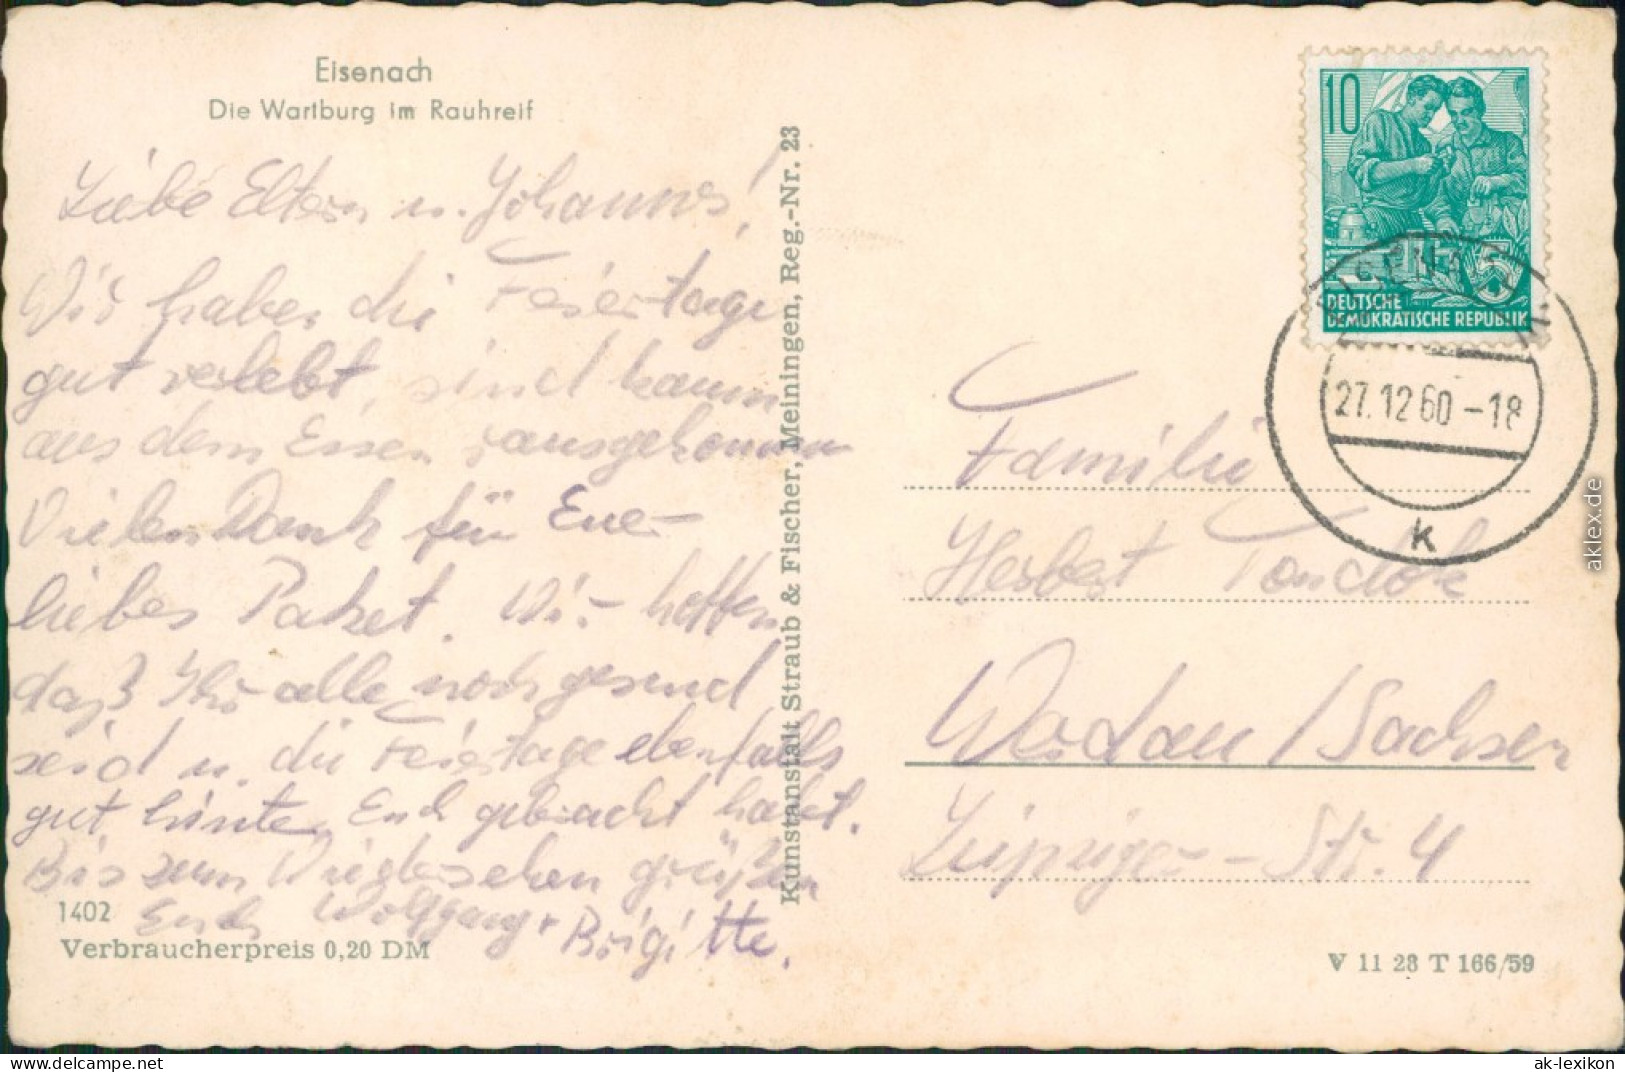 Eisenach
Die Wartburg im Rauhreif
Liebe Eltern u. Johannes!
Wir haben die Feiertage
gut verlebt, sind kaum
aus dem Essen rausgekommen
Vielen Dank für Eue-
liebes Paket. Wir hoffen
daß Ihr alle noch gesund
seid u. die Feiertage ebenfalls
gut hinter Euch gebracht habt.
Bis zum Wiedersehen grüßen
Euch Wolfgang + Brigitte.
1402
Verbraucherpreis 0,20 DM
Kunstanstalt Straub & Fischer, Meiningen, Reg.-Nr. 23
10
5
DEUTSCHE
DEMOKRATISCHE REPUBLIK
EISENACH
27.12.60-18
k
Familie
Herbert
Werdau / Sachsen
Leipziger-Str. 4
V 11 28 T 166/59
aklex.de
www.delcampe.net
ak-lexikon